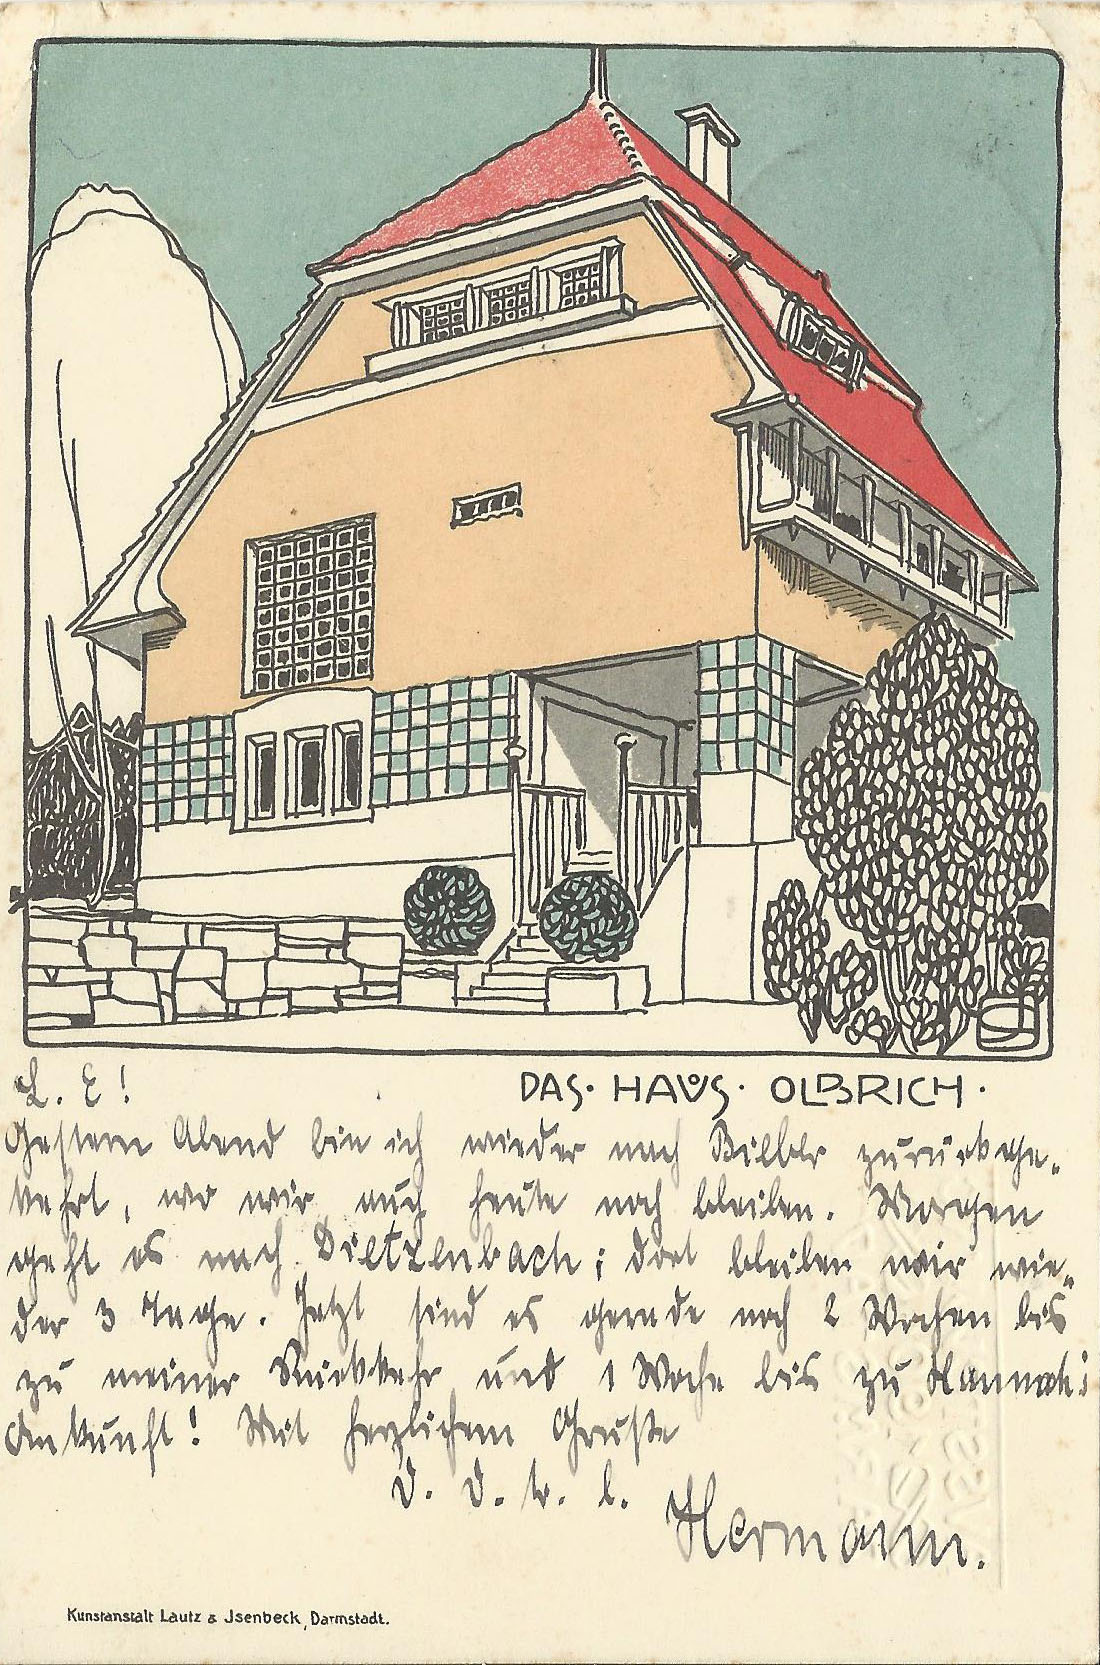 DAS · HAUS · OLBRICH ·
L. E!
Gestern Abend bin ich wieder nach zurückge-
kehrt, wo wir auch heute noch bleiben. Morgen
geht es nach Dietzenbach; dort bleiben wir wie-
der 3 Tage. Jetzt sind es gerade noch 2 Wochen bis
zu meiner Rückkehr und 1 Woche bis zu
Ankunft! Mit herzlichem Gruße
D. D. l.
Hermann.
Kunstanstalt Lautz & Jsenbeck, Darmstadt.